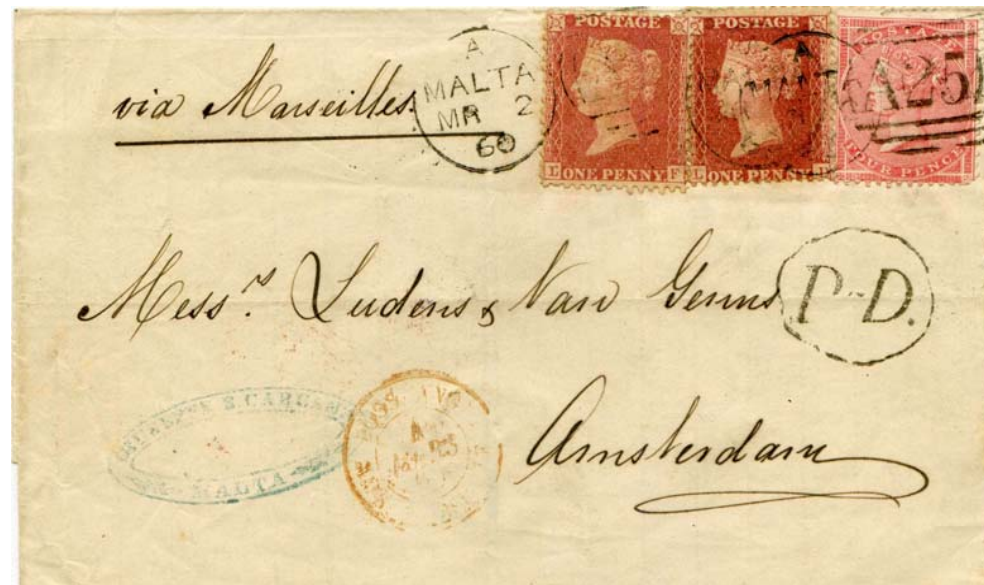 via Marseilles.
A
MALTA
MR 2
60
POSTAGE
L ONE PENNY F
POSTAGE
L ONE PENNY
A
POSTAGE
FOUR PENCE
A25
P.D.
Mess.rs Ludens & Van Geuns
Amsterdam
MALTA